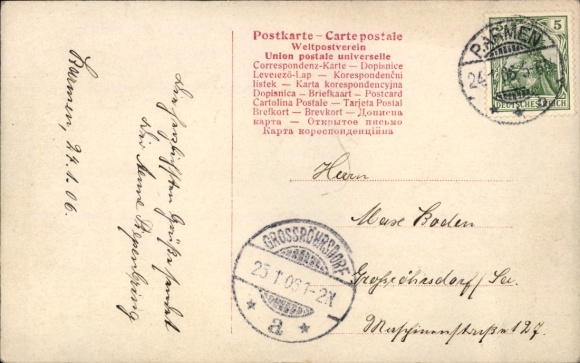 Postkarte – Carte postale
Weltpostverein
Union postale universelle
Correspondenz-Karte — Dopisnice
Levelező-Lap — Korespondenční
lístek — Karta korespondencyjna
Dopisnica — Briefkaart — Postcard
Cartolina Postale — Tarjeta Postal
Brefkort — Brevkort — Дописна
карта — Открытое письмо
Карта кореспонденційна
5
DEUTSCHES REICH
BARMEN
24
06
Barmen, 24.1.06.
Die herzlichsten Grüße sendet
Anna
Herrn
Max Boden
Grossröhrsdorf/Sa.
Maschinenstraße 127.
GROSSRÖHRSDORF
25 1 06 1-2N
* a *